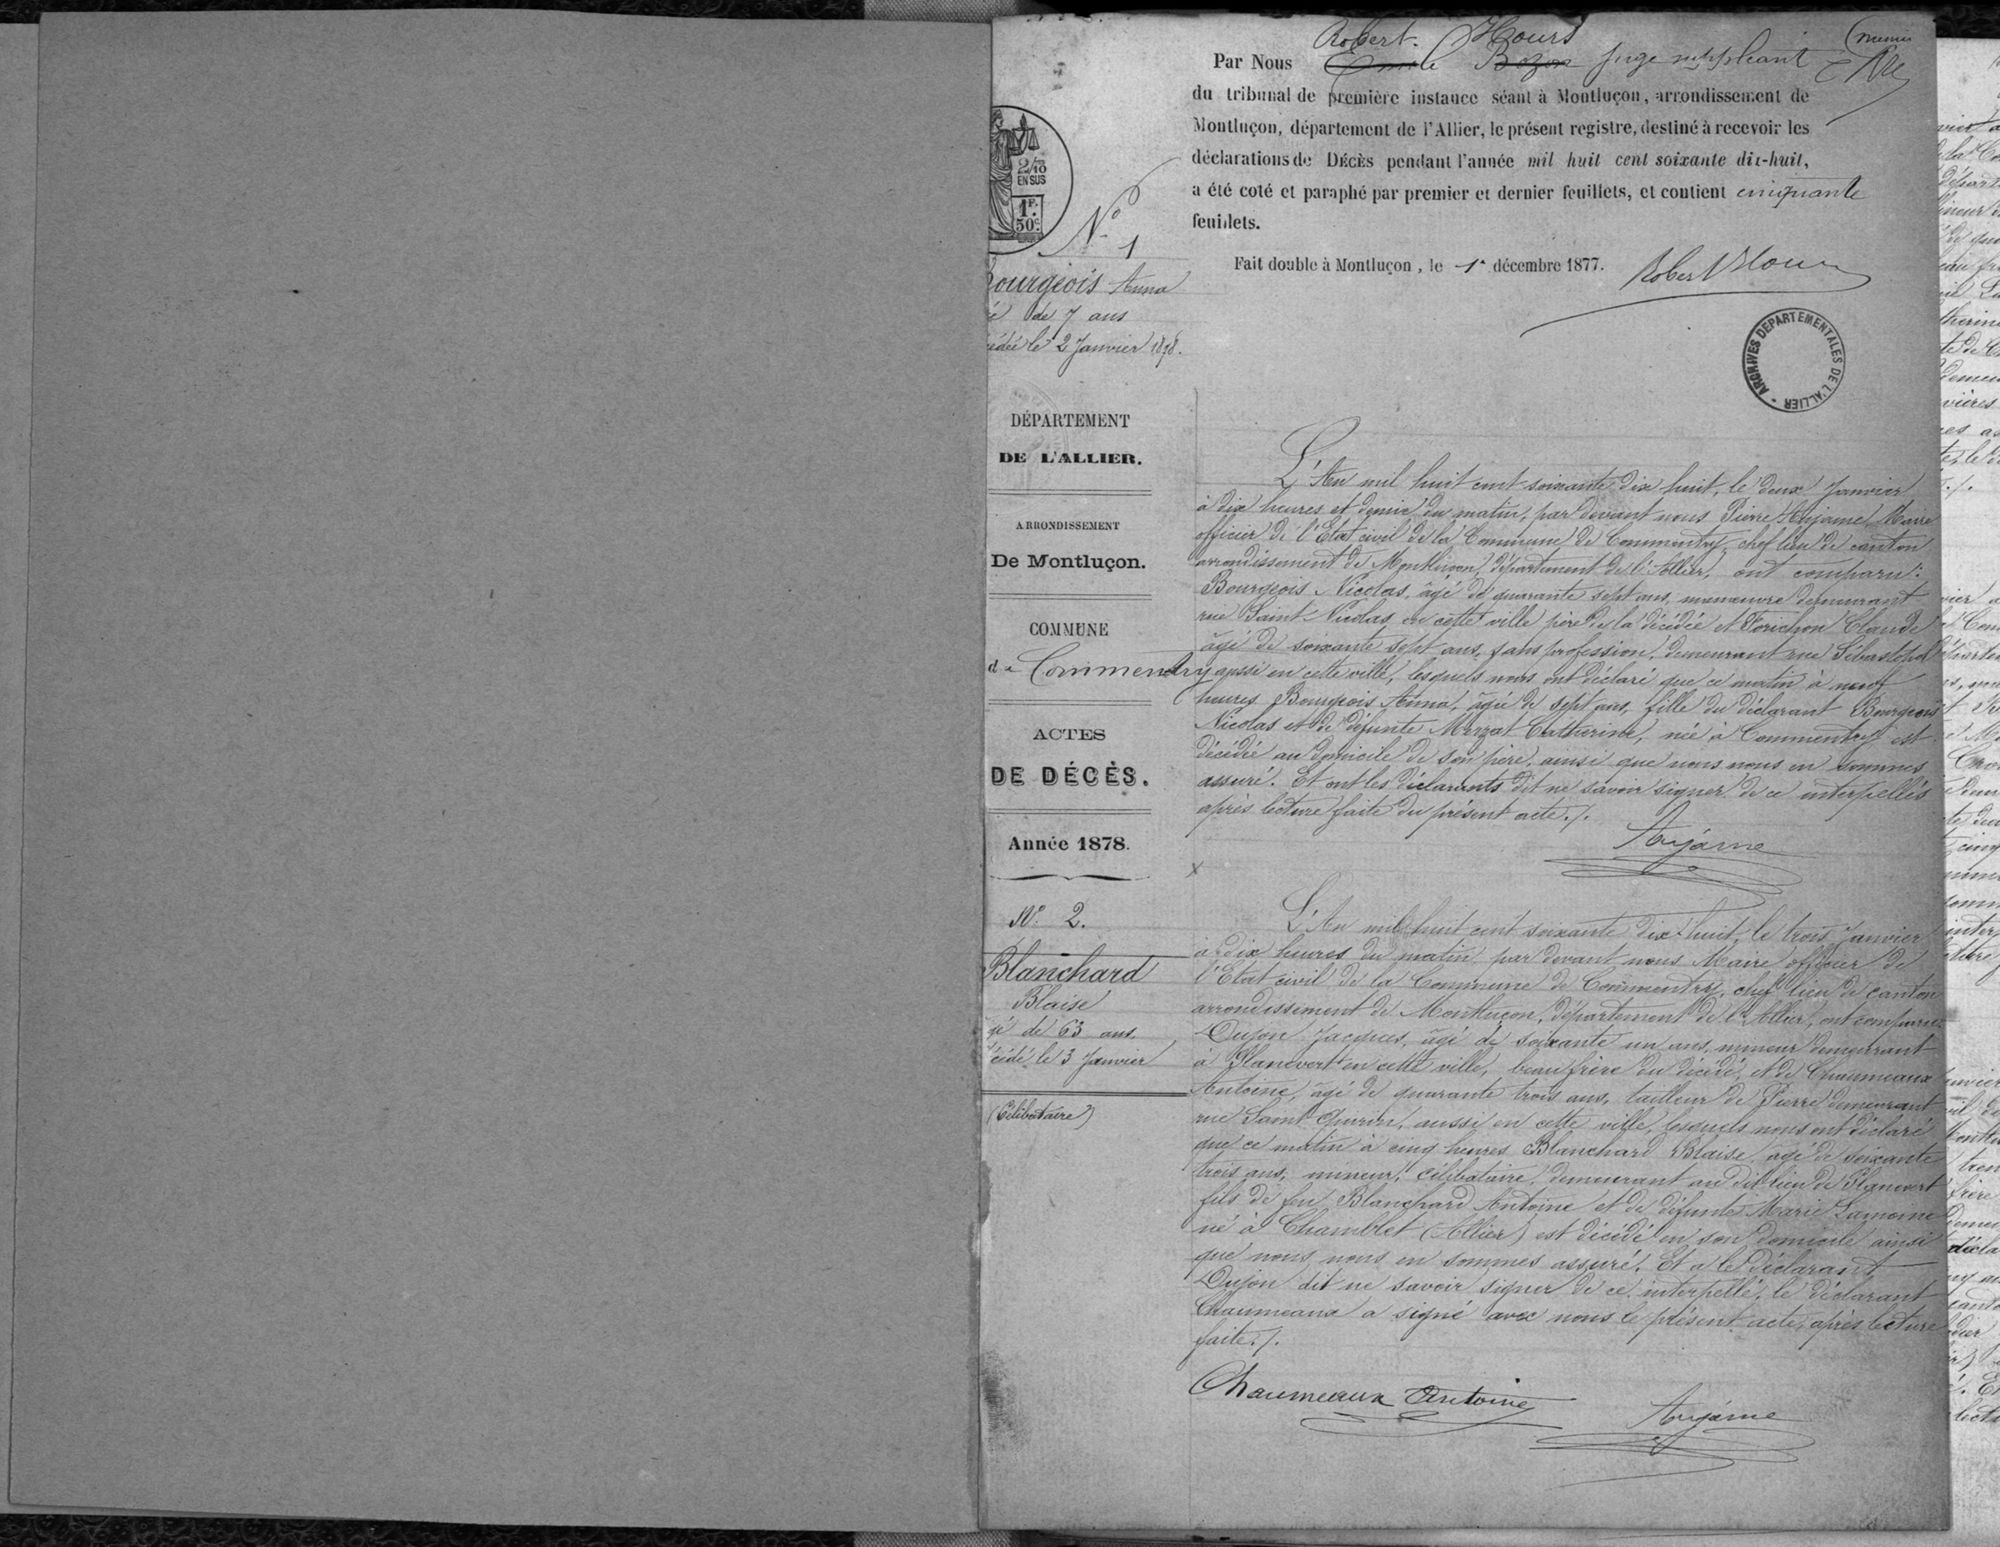 Robert Hours
Par Nous Emile Bozon juge suppléant
du tribunal de première instance séant à Montluçon, arrondissement de
Montluçon, département de l'Allier, le présent registre, destiné à recevoir les
déclarations de Décès pendant l'année mil huit cent soixante dix-huit,
a été coté et paraphé par premier et dernier feuillets, et contient cinquante
feuillets.
Fait double à Montluçon, le 1er décembre 1877.
Robert Hours
ARCHIVES DÉPARTEMENTALES DE L'ALLIER
2/10
EN SUS
1F.
50c.
No 1
Bourgeois Anna
de 7 ans
le 2 Janvier 1878.
DÉPARTEMENT
DE L'ALLIER.
ARRONDISSEMENT
De Montluçon.
COMMUNE
de Commentry
ACTES
DE DÉCÈS.
Année 1878.
L'An mil huit cent soixante dix huit, le deux Janvier
à dix heures et demie du matin, par devant nous Pierre Aujame, Maire
officier de l'Etat civil de la Commune de Commentry, chef lieu de canton
arrondissement de Montluçon, département de l'Allier, ont comparu:
Bourgeois Nicolas, âgé de quarante sept ans, manœuvre demeurant
rue Saint Nicolas, en cette ville père de la décédée et Forichon Claude
âgé de soixante sept ans, sans profession, demeurant rue Sébastopol
aussi en cette ville, lesquels nous ont déclaré que ce matin à neuf
heures Bourgeois Anna, âgée de sept ans, fille du déclarant Bourgeois
Nicolas et de défunte Mazat Catherine, née à Commentry est
décédée au domicile de son père, ainsi que nous nous en sommes
assuré. Et ont les déclarants dit ne savoir signer de ce interpellés
après lecture faite du présent acte./.
Aujame
No 2.
Blanchard
Blaise
âgé de 63 ans
décédé le 3 Janvier
(Célibataire)
L'An mil huit cent soixante dix-huit, le trois Janvier
à dix heures du matin par devant nous Maire officier de
l'Etat civil de la Commune de Commentry, chef lieu de canton
arrondissement de Montluçon, département de l'Allier, ont comparu:
Dujon Jacques, âgé de soixante un ans, mineur demeurant
à Planevert en cette ville, beau frère du décédé, et de Chaumeaux
Antoine, âgé de quarante trois ans, tailleur de Pierre demeurant
rue Saint Quirin, aussi en cette ville, lesquels nous ont déclaré
que ce matin à cinq heures Blanchard Blaise, âgé de soixante
trois ans, mineur, célibataire, demeurant au dit lieu de Planevert
fils de feu Blanchard Antoine et de défunte Marie Lamoine
né à Chamblet (Allier) est décédé en son domicile ainsi
que nous nous en sommes assuré. Et a le déclarant
Dujon dit ne savoir signer de ce interpellé, le déclarant
Chaumeaux a signé avec nous le présent acte, après lecture
faite./.
Chaumeaux Antoine
Aujame